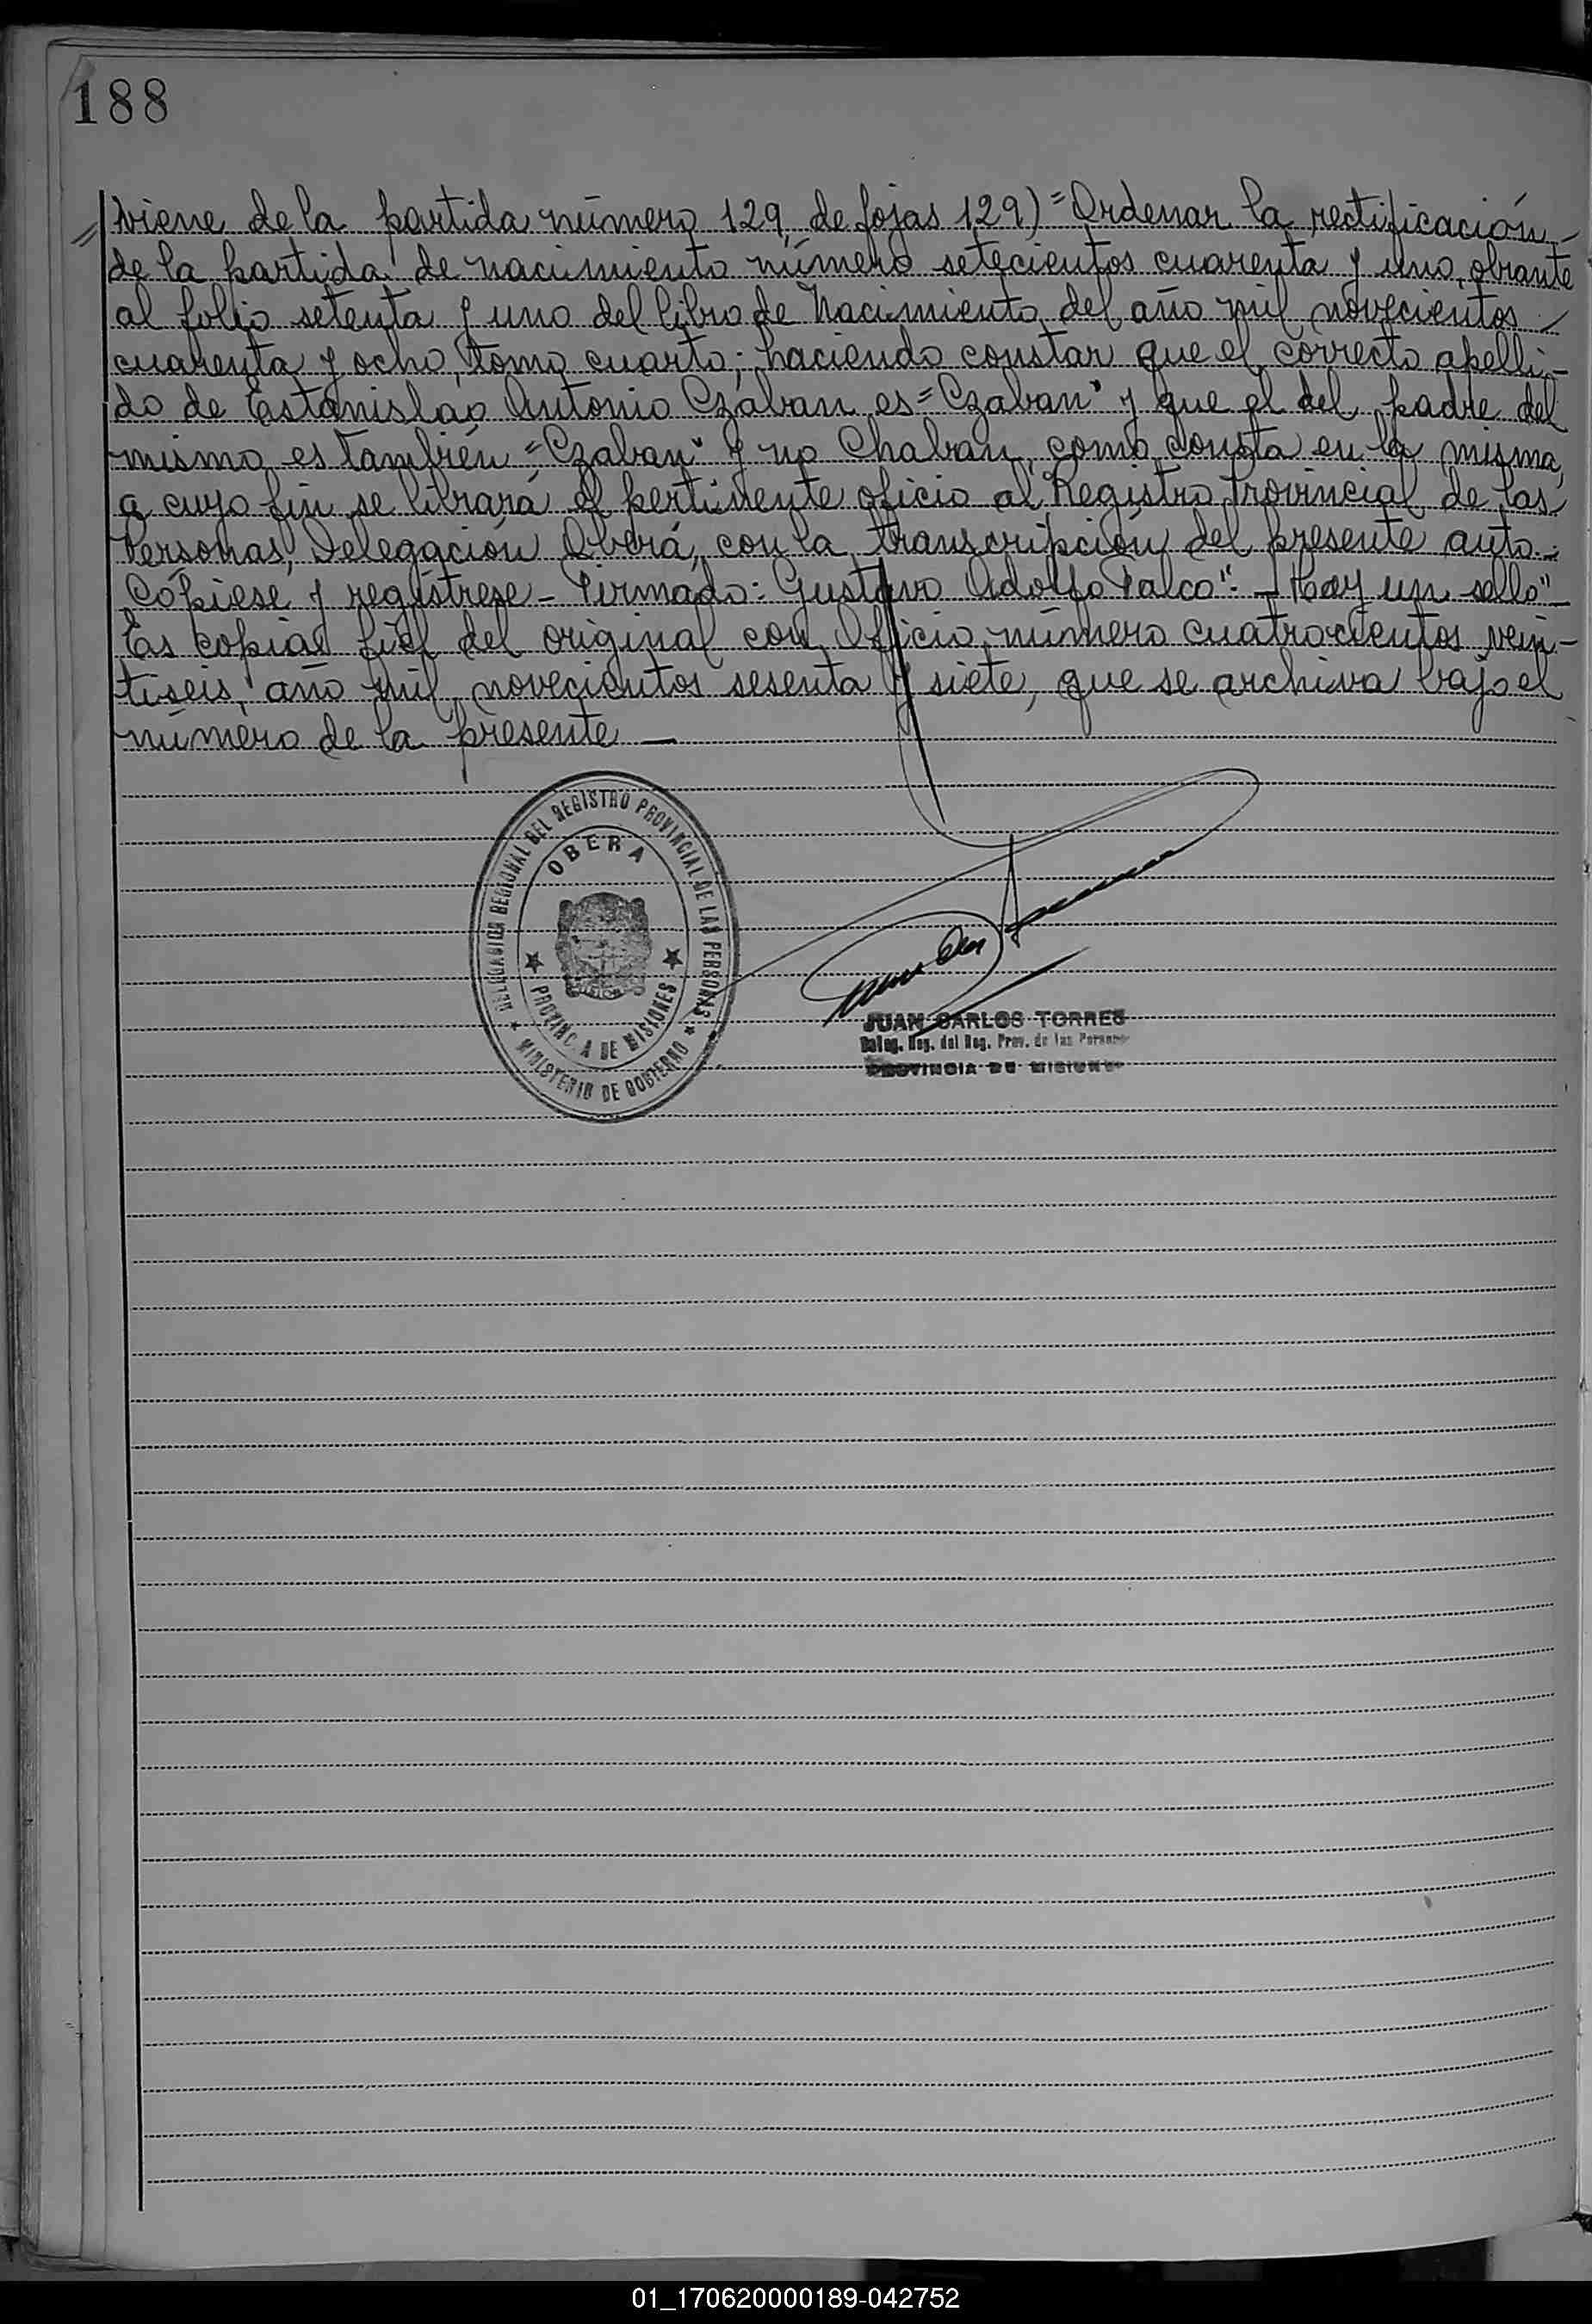 188
viene de la partida número 129, de fojas 129) = Ordenar la rectificación -
de la partida de nacimiento número setecientos cuarenta y uno, obrante
al folio setenta y uno del libro de Nacimiento del año mil novecientos -
cuarenta y ocho, tomo cuarto; haciendo constar que el correcto apelli-
do de Estanislao Antonio Czaban es = Czaban" y que el del padre del
mismo es también = Czaban" y no Chaban, como consta en la misma,
a cuyo fin se librará el pertinente oficio al Registro Provincial de las
Personas, Delegación Oberá, con la transcripción del presente auto.-
Cópiese y regístrese - Firmado: Gustavo Adolfo Falco". - Hay un sello" -
Es copia fiel del original con Oficio número cuatrocientos vein-
tiseis, año mil novecientos sesenta y siete, que se archiva bajo el
número de la presente —
DELEGACION REGIONAL DEL REGISTRO PROVINCIAL DE LAS PERSONAS
OBERA
PROVINCIA DE MISIONES
MINISTERIO DE GOBIERNO
JUAN CARLOS TORRES
Deleg. Reg. del Reg. Prov. de las Personas
PROVINCIA DE MISIONES
01_170620000189-042752